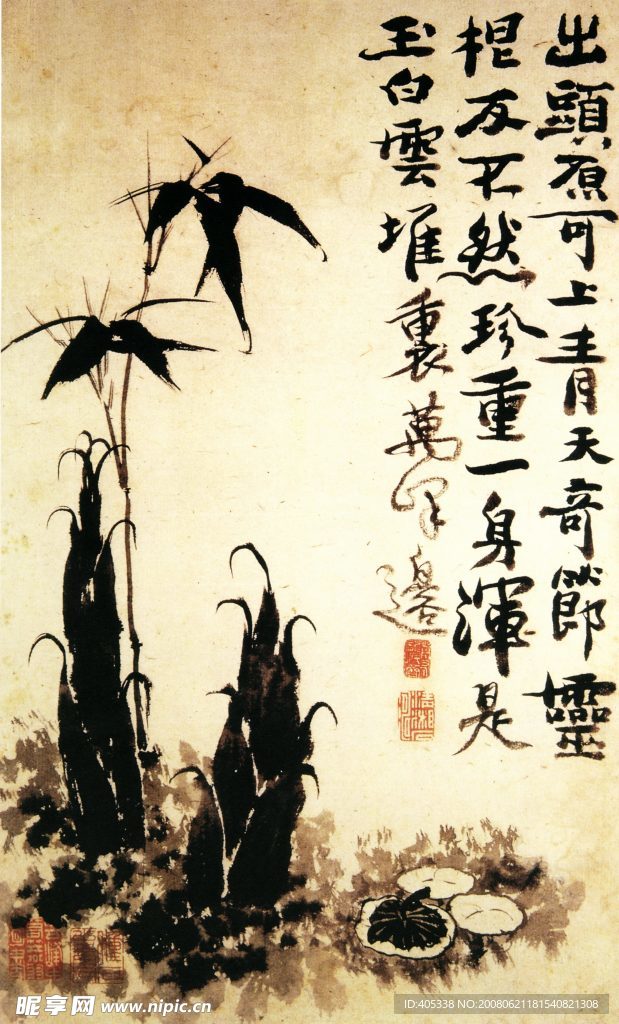 出頭原可上青天奇節靈
根反不然珍重一身渾是
玉白雲堆裏萬峰邊
昵享网 www.nipic.cn
ID:405338 NO:20080621181540821308